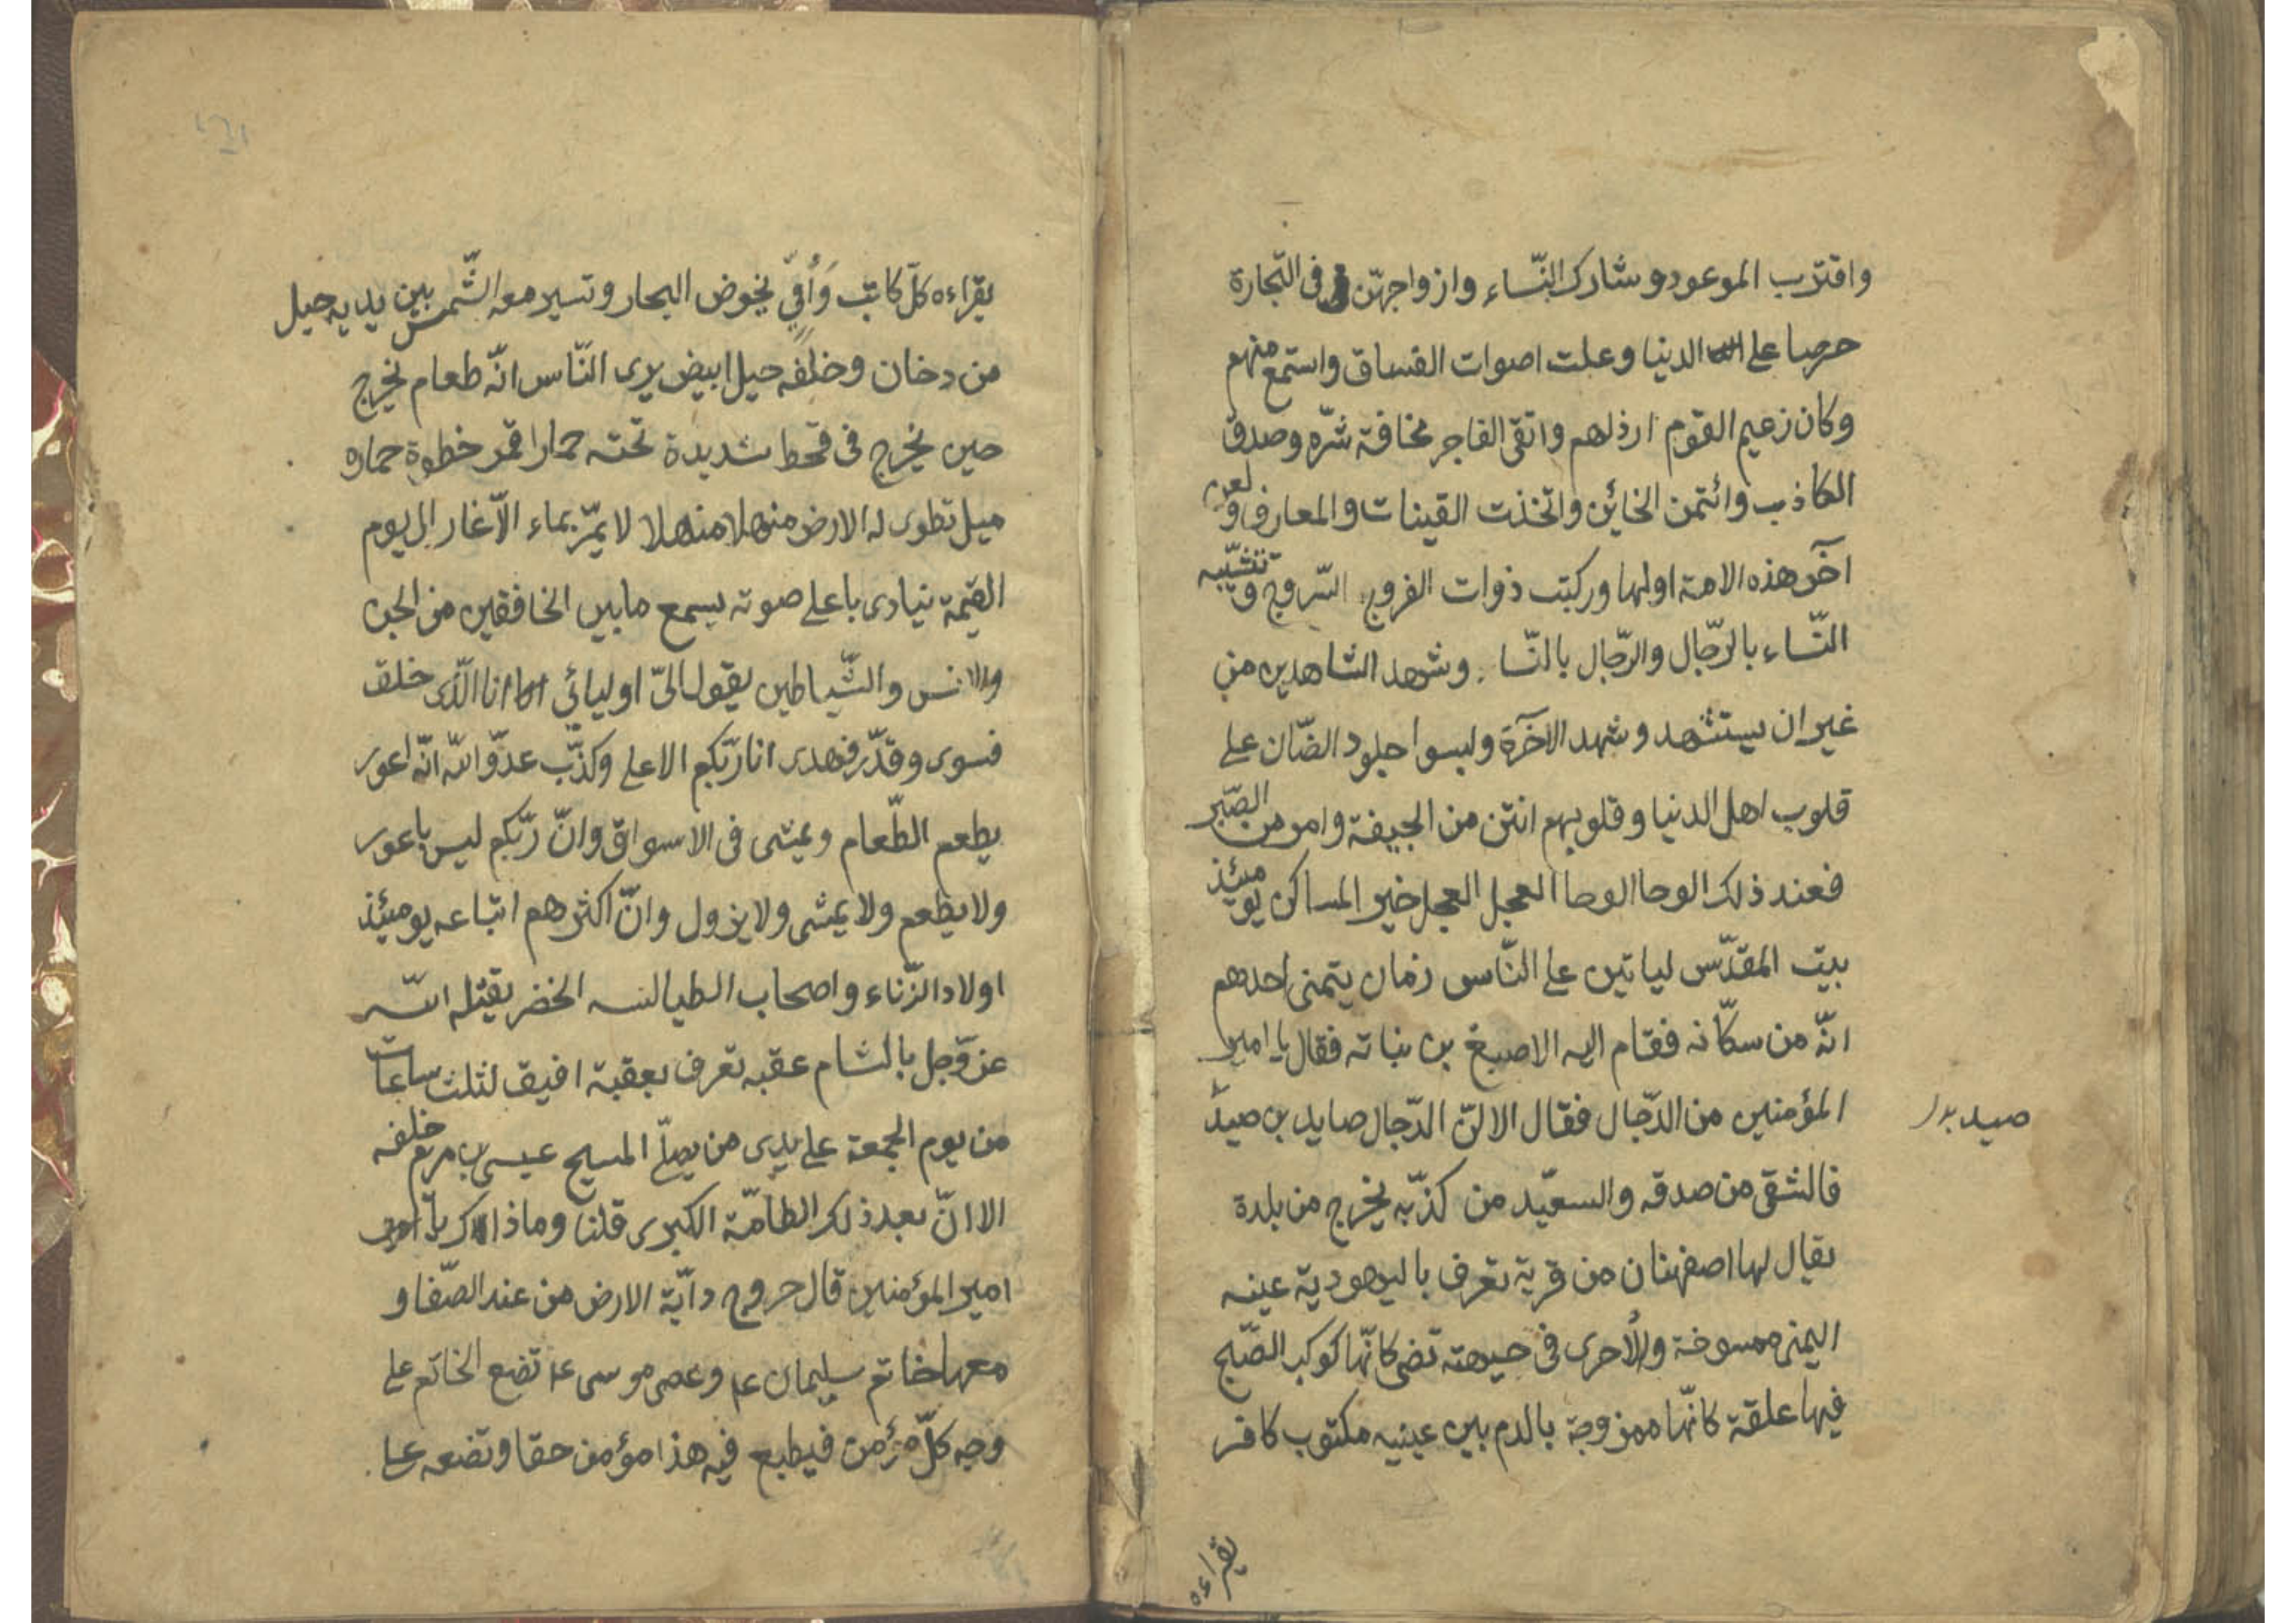 واقترب الموعود و شارك النّساء وازواجهنّ فى التّجارة
حرصا على الدنيا وعلت اصوات الفساق واستمع منهم
وكان زعيم القوم ارذلهم واتقى الفاجر مخافة شرّه وصدق
الكاذب وائتمن الخائن واتخذت القينات والمعازف ولعن
آخر هذه الامة اولها وركبت ذوات الفروج السّروج وتتشبّه
النّساء بالرّجال والرّجال بالنّسا . وشهد الشاهدين من
غير ان يستشهد وشهد الآخرة ولبسوا جلود الضّان على
قلوب اهل الدنيا وقلوبهم انتن من الجيفة وامر من الصّبر
فعند ذلك الوحا الوحا العجل العجل خير المساكن يومئذ
بيت المقدّس لياتين على النّاس زمان يتمنى احدهم
انّه من سكّانه فقام اليه الاصبغ بن نباته فقال يا امير
المؤمنين من الدّجال فقال الا انّ الدّجال صايد بن صيد
صيد بدل
فالشقى من صدقه والسعيد من كذّبه يخرج من بلدة
يقال لها اصفهنان من قرية تعرف باليهودية عينه
اليمنى ممسوخة والأخرى فى جبهته تضى كانّها كوكب الصّبح
فيها علقة كانّها ممزوجة بالدم بين عينيه مكتوب كافر
يقراءه
يقراءه كلّ كاتب وأُمّىّ يخوض البحار وتسير معه الشّمس بين يديه جبل
من دخان وخلفه جبل ابيض يرى النّاس انّه طعام يخرج
حين يخرج فى قحط شديدة تحته حمار اقمر خطوة حماره
ميل تطوى له الارض منهلا منهلا لا يمرّ بماء الّا غار الى يوم
القيمة ينادى باعلى صوته يسمع ما بين الخافقين من الجن
والانس والشّياطين يقول الىّ اوليائى انا الّذى خلق
فسوى وقدّر فهدى انا ربّكم الاعلى وكذّب عدوّ اللّه انّه اعور
يطعم الطّعام ويمشى فى الاسواق وانّ ربّكم ليس باعور
ولا يطعم ولا يمشى ولا يزول وانّ اكثرهم اتباعه يومئذ
اولاد الزّناء واصحاب الطيالسه الخضر يقتله اللّه
عزّ وجل بالشام عقبه تعرف بعقبة افيق لثلث ساعات
من يوم الجمعة على يدى من يصلّى المسيح عيسى بن مريم خلفه
الا انّ بعد ذلك الطامّة الكبرى قلنا وما ذاك يا
امير المؤمنين قال خروج دابّة الارض من عند الصّفا و
معها خاتم سليمان عم وعصى موسى عم تضع الخاتم على
وجه كلّ مؤمن فيطبع فيه هذا مؤمن حقا وتضعه على